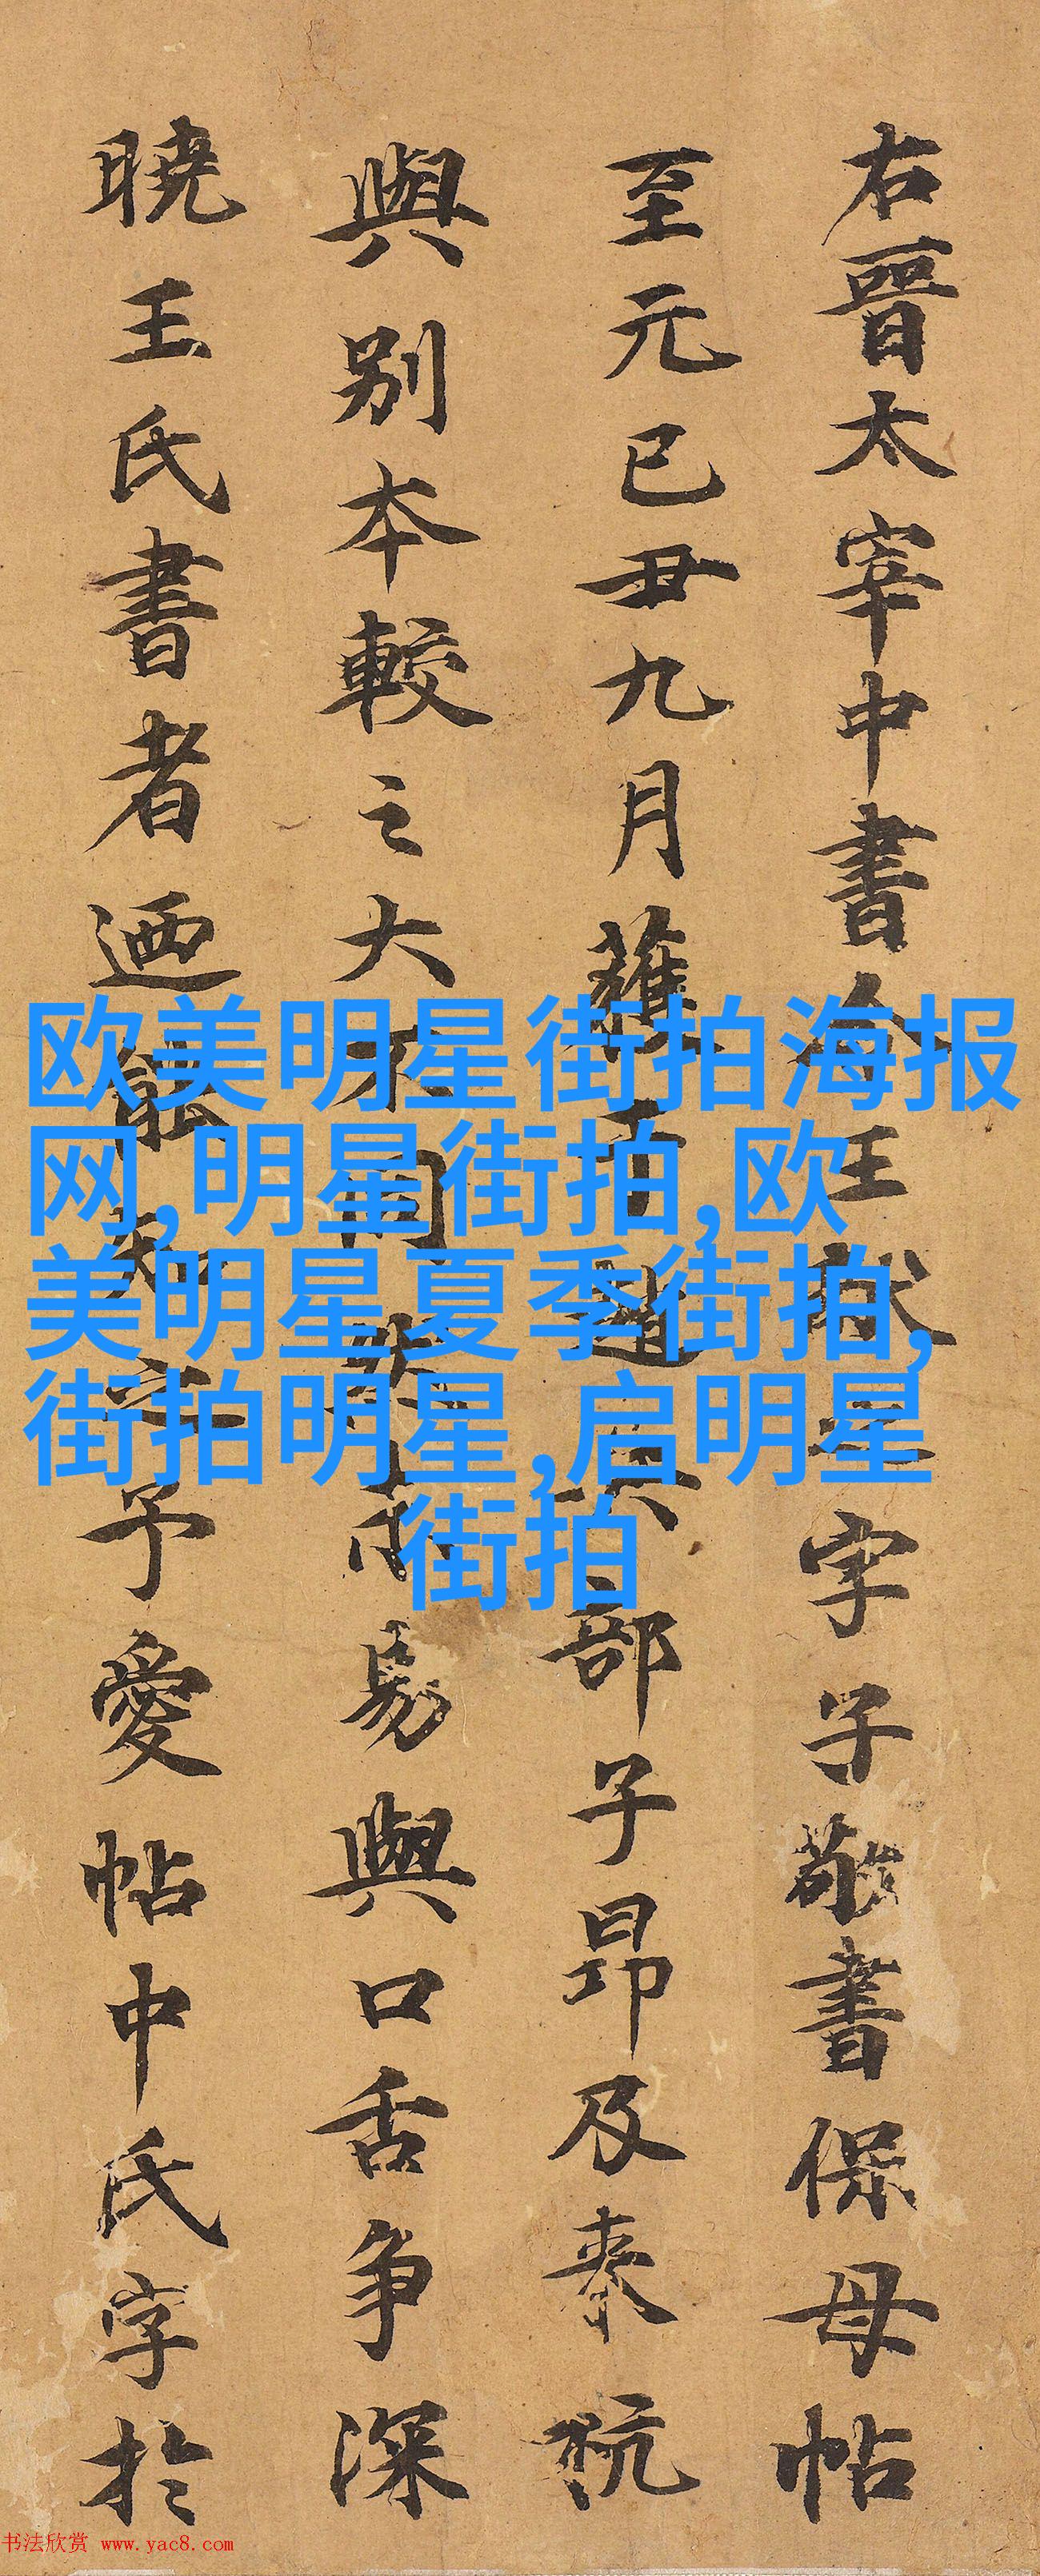 右晉太宰中書令王獻之字子敬書保母帖
至元已丑九月于趙部子昂及泰
與别本較之大不同易與口舌争深
曉王氏書者迺能知之予愛帖中氏字於
欧美明星街拍海报
网,明星街拍,欧
美明星夏季街拍,
街拍明星,启明星
街拍
书法欣赏 www.yac8.com